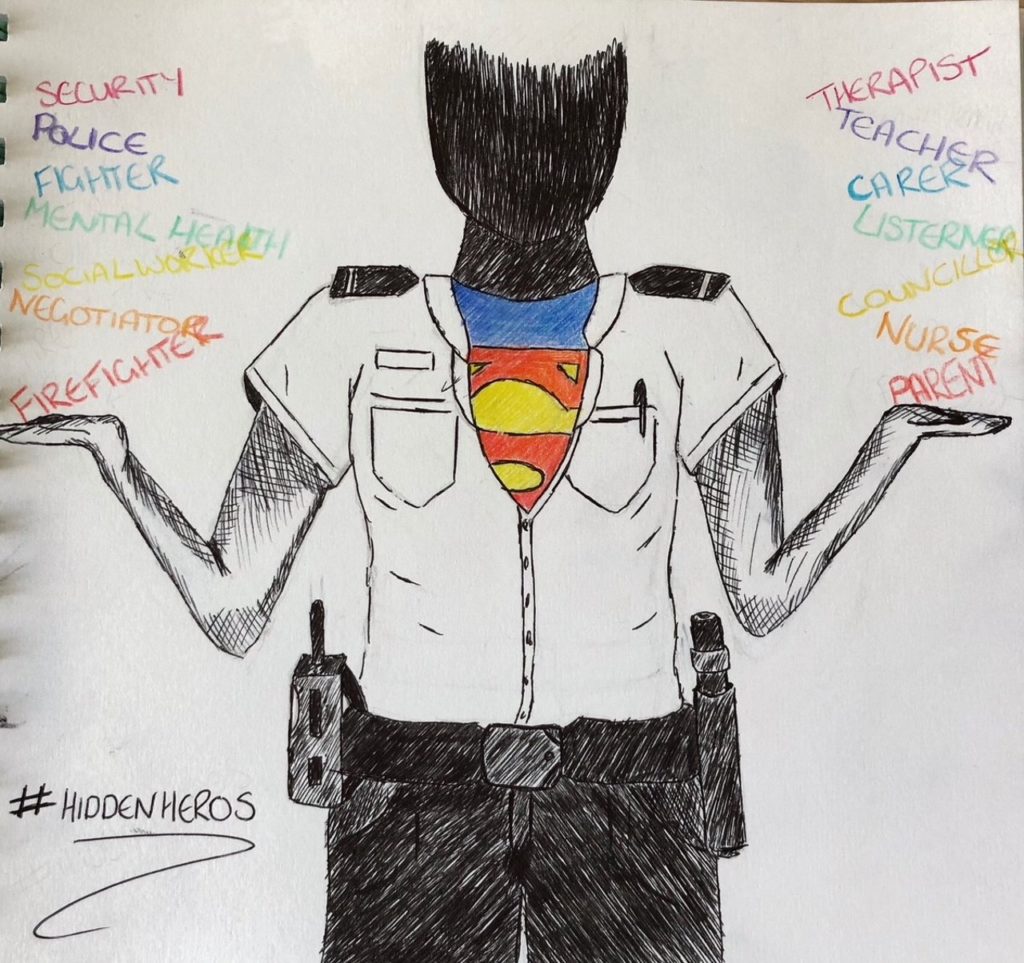 SECURITY
POLICE
FIGHTER
MENTAL HEALTH
SOCIALWORKER
NEGOTIATOR
FIREFIGHTER
THERAPIST
TEACHER
CARER
LISTERNER
COUNCILLER
NURSE
PARENT
#HIDDENHEROS